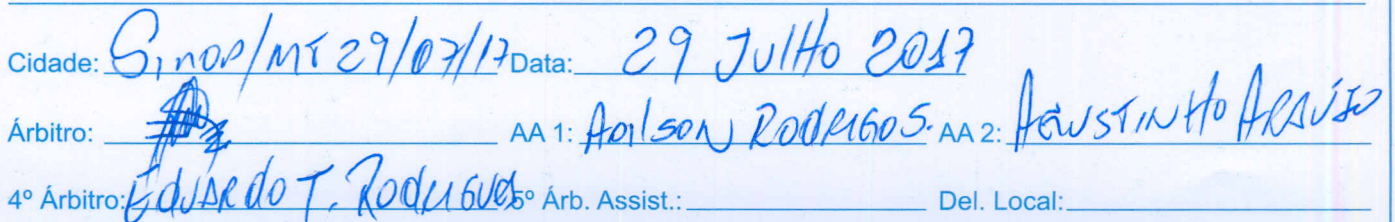 Cidade: Sinop/MT 29/07/17 Data: 29 Julho 2017
Árbitro: AA 1: Adilson Rodrigos. AA 2: Agustinho Araújo
4º Árbitro: Eduardo T. Rodrigues 5º Árb. Assist.: Del. Local: